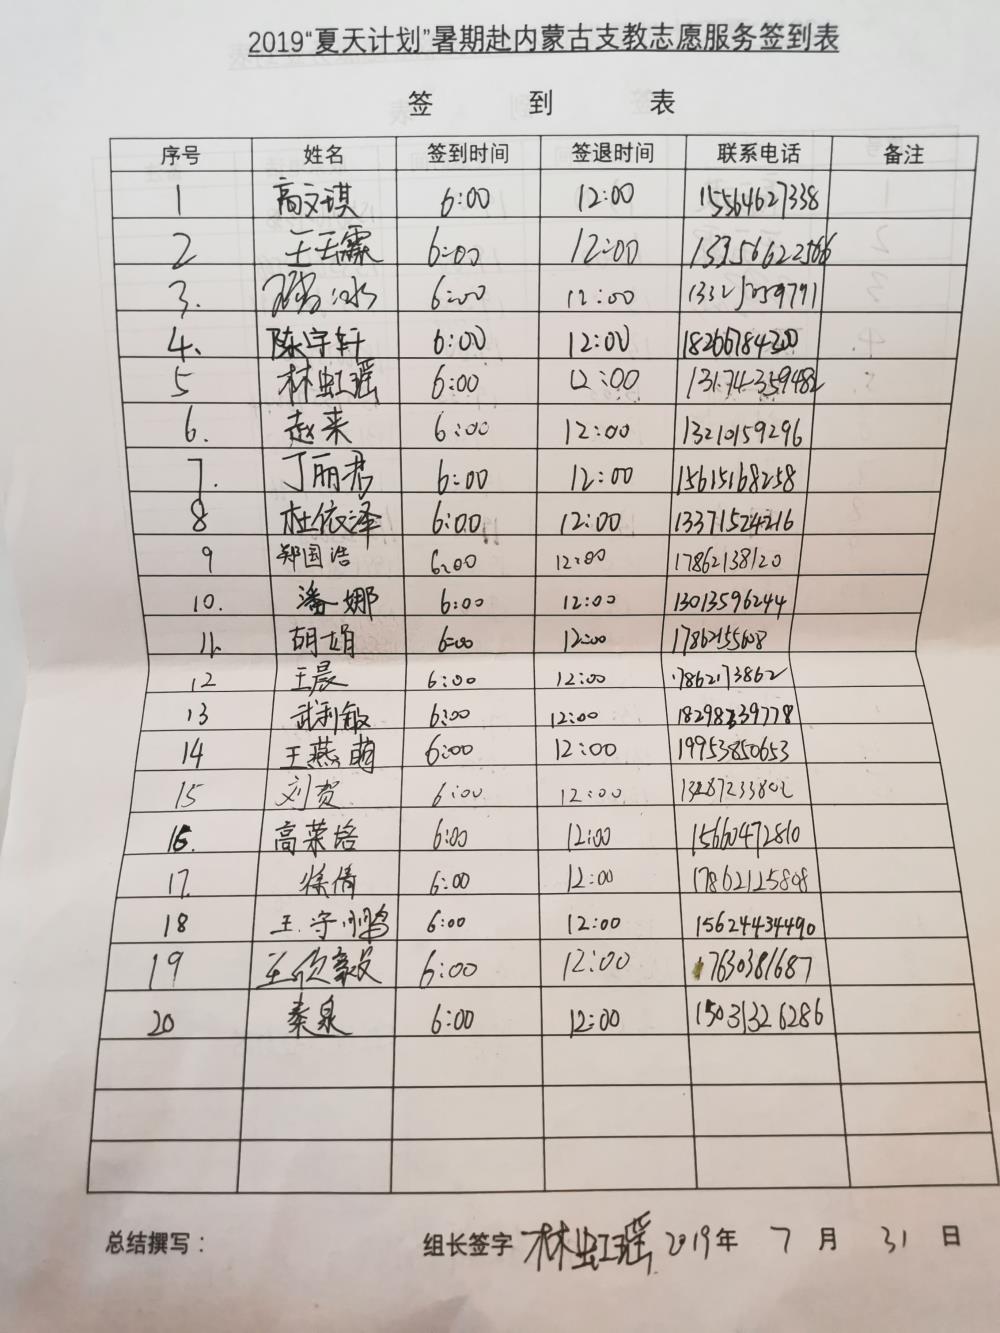 2019“夏天计划”暑期赴内蒙古支教志愿服务签到表
签 到 表
序号 姓名 签到时间 签退时间 联系电话 备注
1 高文琪 6:00 12:00 15564627338
2 王玉霖 6:00 12:00 13356622566
3. 6:00 12:00
4、 陈宇轩 6:00 12:00 18266784200
5 林虹瑶 6:00 12:00
6. 赵来 6:00 12:00 13210159296
7. 丁丽君 6:00 12:00 15615168258
8 杜依泽 6:00 12:00 13371524216
9 郑国浩 6:00 12:00 17862138120
10. 潘娜 6:00 12:00 13013596244
11. 胡娟 6:00 12:00
12 王晨 6:00 12:00 17862173862
13 武利敏 6:00 12:00 18298339778
14 王燕萌 6:00 12:00 19953850653
15 刘贺 6:00 12:00 13287233802
16. 高荣培 6:00 12:00 15660472810
17. 徐倩 6:00 12:00 17862125808
18 王守鹏 6:00 12:00 15624434490
19 王欣毅 6:00 12:00 17630381687
20 秦泉 6:00 12:00 15031326286
总结撰写： 组长签字 林虹瑶 2019年 7 月 31 日